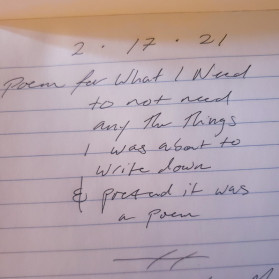 2 · 17 · 21
Poem for What I Need
to not need
any the things
I was about to
write down
& pretend it was
a poem